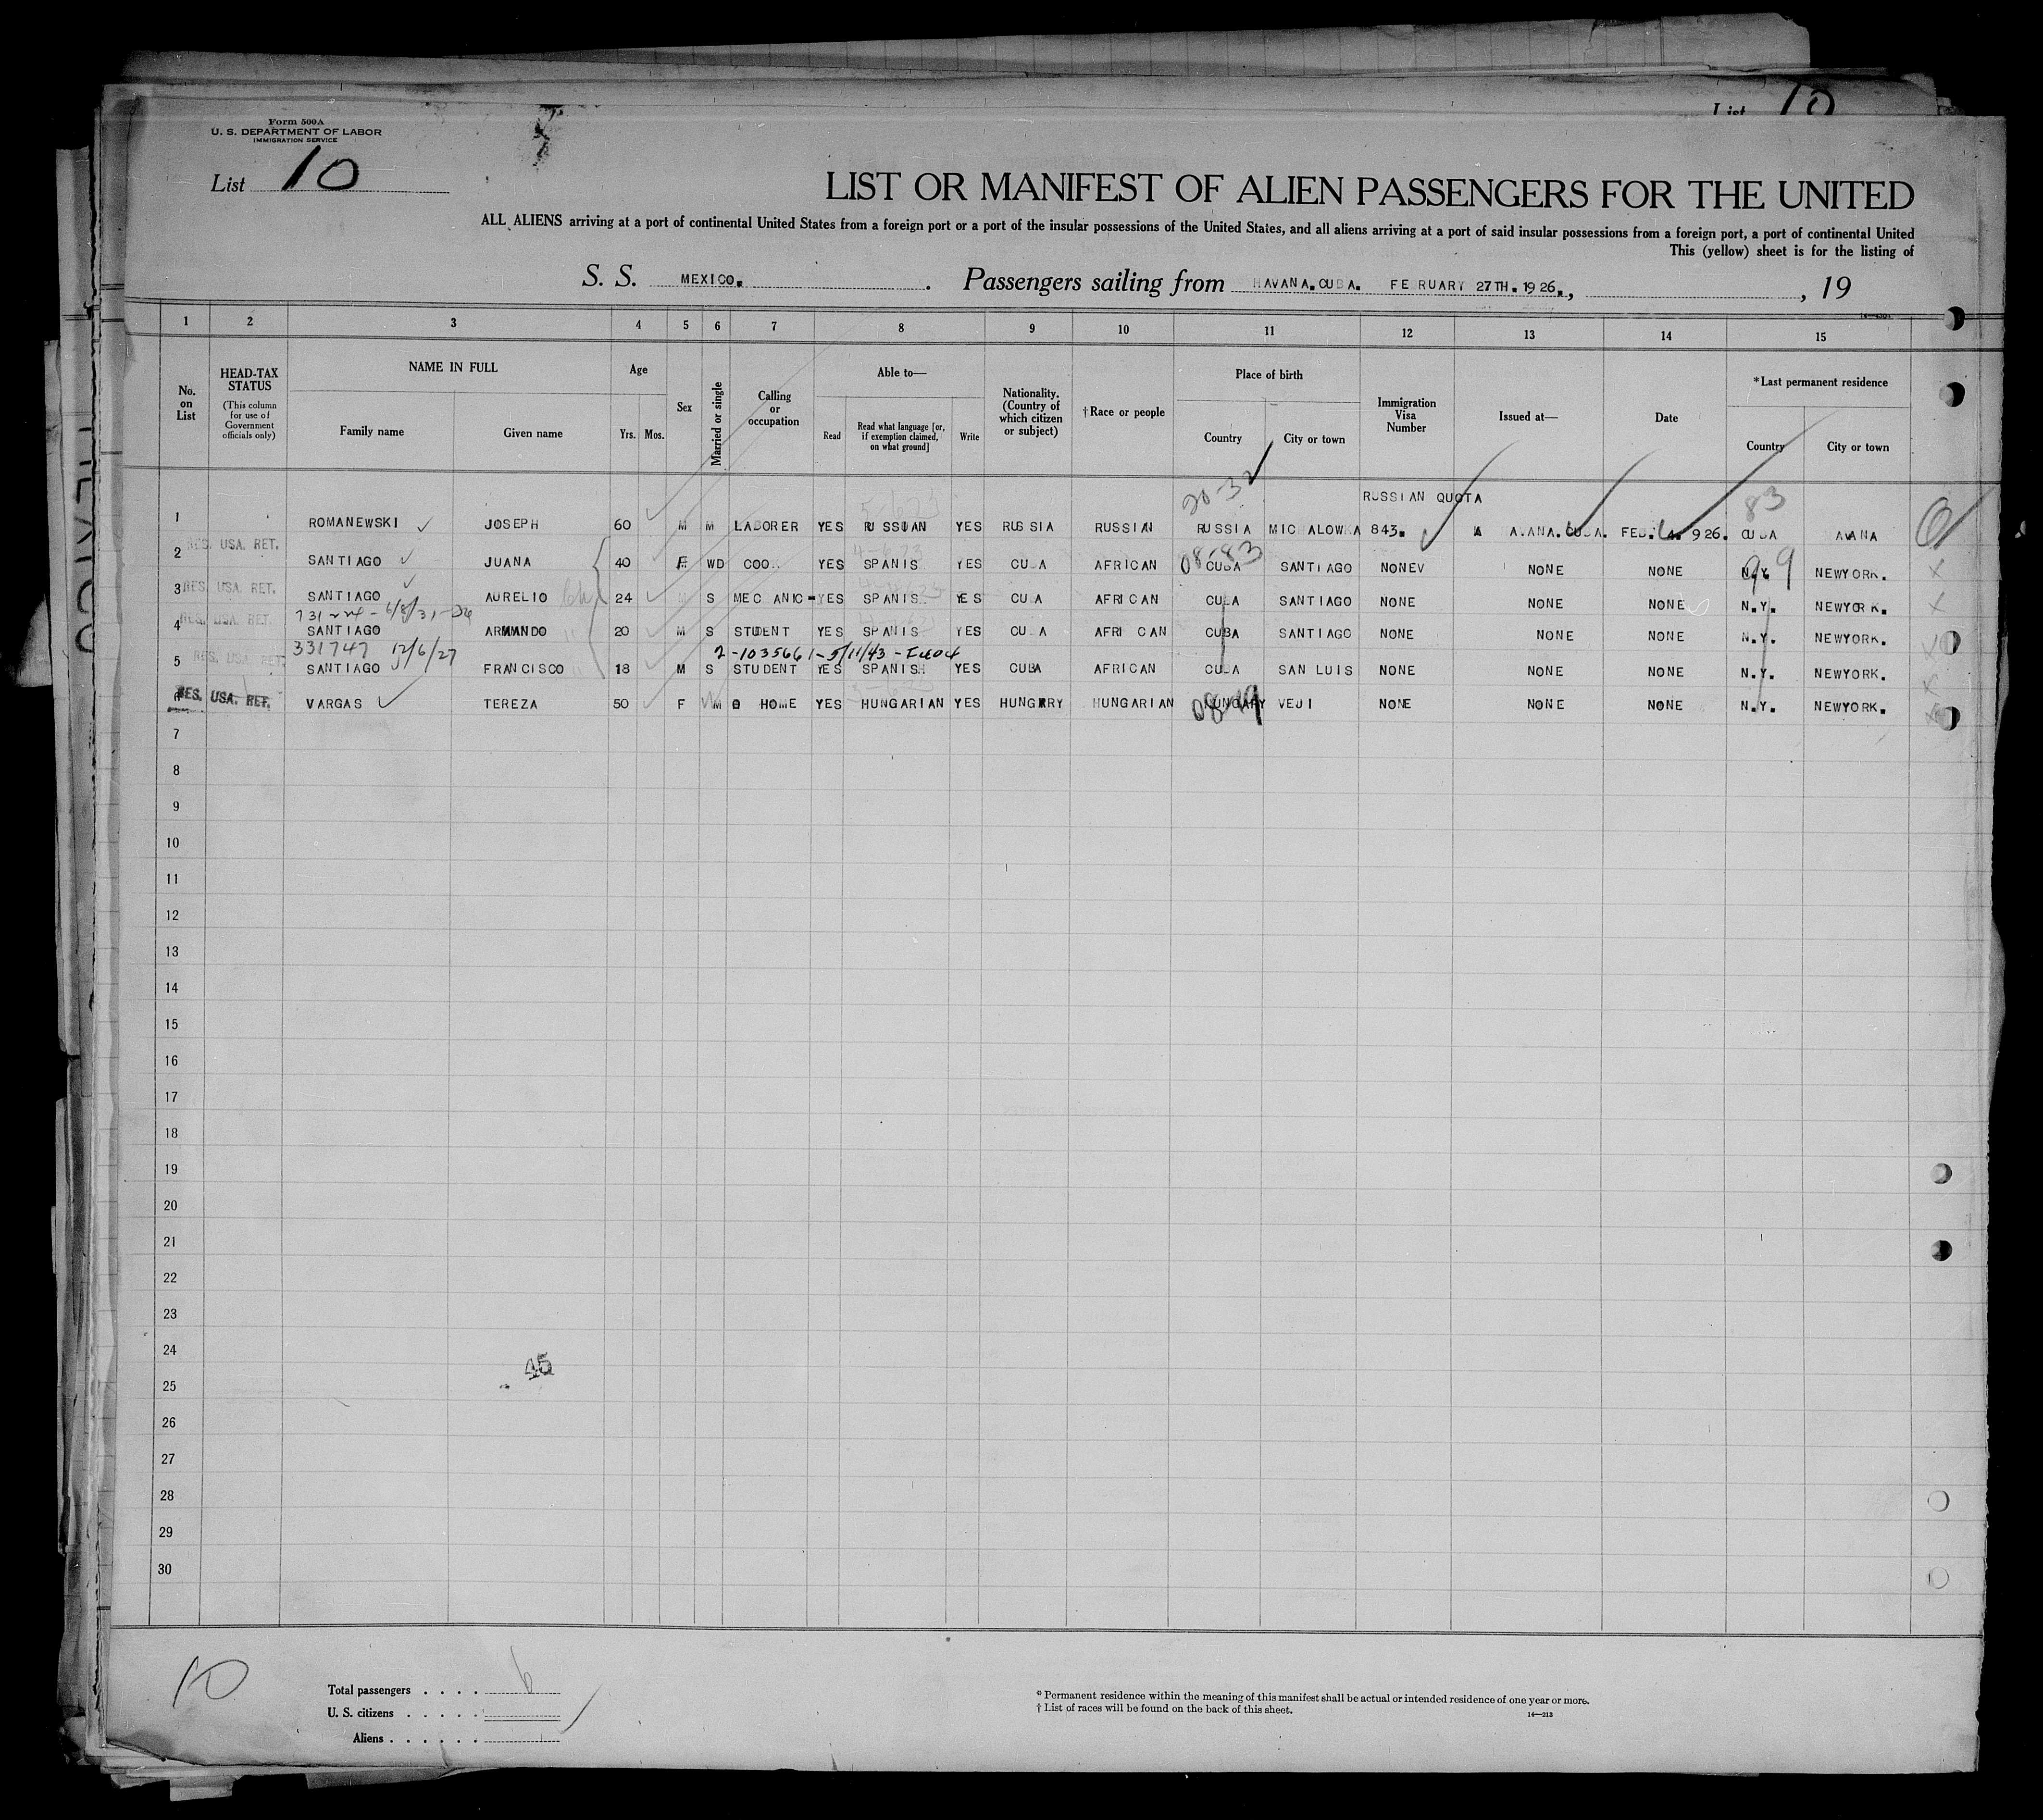 List 10
Form 500A
U. S. DEPARTMENT OF LABOR
IMMIGRATION SERVICE
List 10
LIST OR MANIFEST OF ALIEN PASSENGERS FOR THE UNITED
ALL ALIENS arriving at a port of continental United States from a foreign port or a port of the insular possessions of the United States, and all aliens arriving at a port of said insular possessions from a foreign port, a port of continental United
This (yellow) sheet is for the listing of
S. S. MEXICO. . Passengers sailing from HAVANA.CUBA. FEBRUARY 27TH.1926., , 19
1 2 3 4 5 6 7 8 9 10 11 12 13 14 15
No. on List HEAD-TAX STATUS (This column for use of Government officials only) NAME IN FULL Family name Given name Age Yrs. Mos. Sex Married or single Calling or occupation Able to— Read Read what language [or, if exemption claimed, on what ground] Write Nationality. (Country of which citizen or subject) †Race or people Place of birth Country City or town Immigration Visa Number Issued at— Date *Last permanent residence Country City or town
20-32 RUSSIAN QUOTA 83
1 ROMANEWSKI JOSEPH 60 M M LABORER YES RUSSIAN YES RUSSIA RUSSIAN RUSSIA MICHALOWKA 843. A.ANA.CUBA. FEB. 926. CUBA AVANA
2 RES. USA. RET. SANTIAGO JUANA 40 F WD COO YES SPANIS YES CU A AFRICAN 08-83 CUBA SANTIAGO NONEV NONE NONE N.Y. 99 NEWYORK.
3 RES. USA. RET. SANTIAGO AURELIO 24 S MEC ANIC- YES SPANIS YES CU A AFRICAN CUBA SANTIAGO NONE NONE NONE N.Y. NEWYORK.
4 RES. USA. RET. 6/8/31
SANTIAGO ARMANDO 20 M S STUDENT YES SPANIS YES CU A AFRI CAN CUBA SANTIAGO NONE NONE NONE N.Y. NEWYORK.
331747 12/6/27 2-1035661-5/11/43-
5 RES. USA. RET. SANTIAGO FRANCISCO 18 M S STUDENT YES SPANISH YES CUBA AFRICAN CUBA SAN LUIS NONE NONE NONE N.Y. NEWYORK.
6 RES. USA. RET. VARGAS TEREZA 50 F M HOME YES HUNGARIAN YES HUNGRRY HUNGARIAN HUNGARY VEJI NONE NONE NONE N.Y. NEWYORK.
7
8
9
10
11
12
13
14
15
16
17
18
19
20
21
22
23
24
45
25
26
27
28
29
30
10
Total passengers . . . . 6
U. S. citizens . . . . .
Aliens . . . . . .
* Permanent residence within the meaning of this manifest shall be actual or intended residence of one year or more.
† List of races will be found on the back of this sheet.
14—213